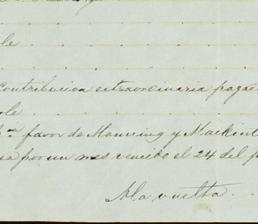 le
contribucion extraordinaria pagad
ole
favor de Manning y Mackint
por un mes vencido el 24 del p
A la vuelta